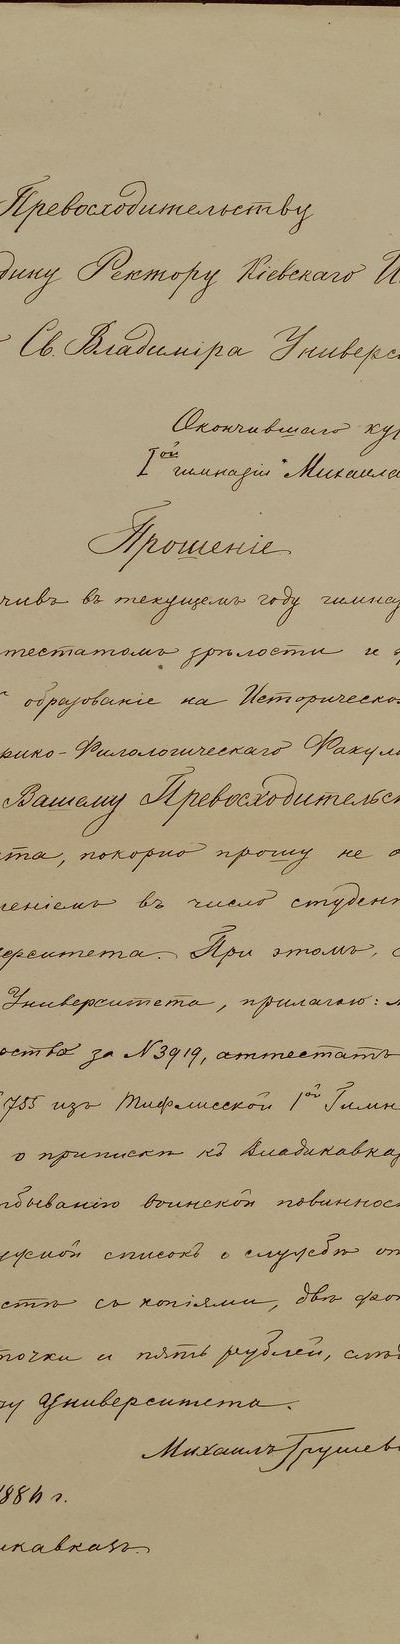 Превосходительству
дину Ректору Кіевскаго И
Св. Владиміра Универс
Окончившаго кур
Iой гимназіи Михаила
Прошеніе
чивъ въ текущемъ году гимназ
тестатомъ зрѣлости и
образованіе на Историческо
рико-Филологическаго Факуль
Вашему Превосходительст
та, покорно прошу не о
леніемъ въ число студент
верситета. При этомъ,
Университета, прилагаю:
ство за N 3919, аттестатъ
755 изъ Тифлисской 1ой Гимн
о припискѣ къ Владикавказ
тбыванію воинской повиннос
ужной списокъ о службѣ от
сть съ копіями, двѣ фот
точки и пять рублей, слѣд
зу Университета.
Михаилъ Грушев
188 г.
икавказъ